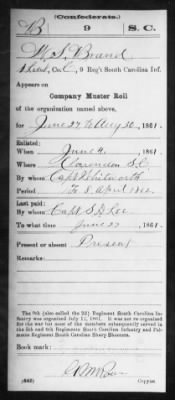 (Confederate.)
B 9 S.C.
W. S. Brand
, Co. C, 9 Reg't South Carolina Inf.
Appears on
Company Muster Roll
of the organization named above,
for June 27 to Aug 30, 1861.
Enlisted:
When June 4, 1861.
Where Clarendon S.C.
By whom Capt
Period To 8 April 1862
Last paid:
By whom Capt S D Lee
To what time June 27, 1861.
Present or absent Present
Remarks:
The 9th (also called the 2d) Regiment South Carolina Infantry was organized July 12, 1861. It was not re-organized
for the war but most of the members subsequently served in
the 5th and 6th Regiments South Carolina Infantry and Palmetto
Regiment South Carolina Sharp Shooters.
Book mark:
(642) Copyist.